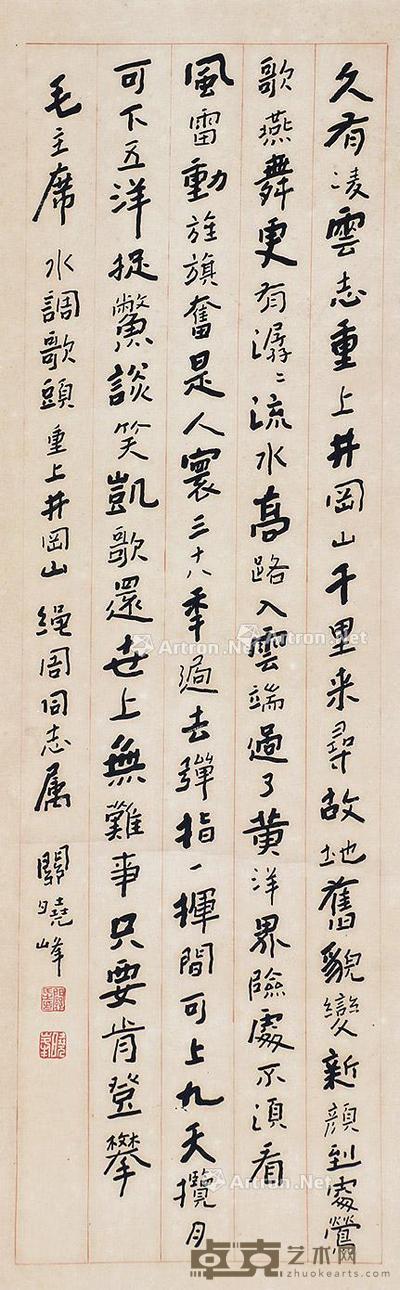 久有凌雲志重上井岡山千里来尋故地舊貌變新顔到處鶯
歌燕舞更有潺〻流水高路入雲端過了黄洋界險處不須看
風雷動旌旗奮是人寰三十八秊過去彈指一揮間可上九天攬月
可下五洋捉鱉談笑凱歌還世上無難事只要肯登攀
毛主席水調歌頭重上井岡山 绳周同志属 關曉峰
Artron.Net
Artron.Net
Artron.Net
Artron.Net
卓克艺术网
zhuokearts.com